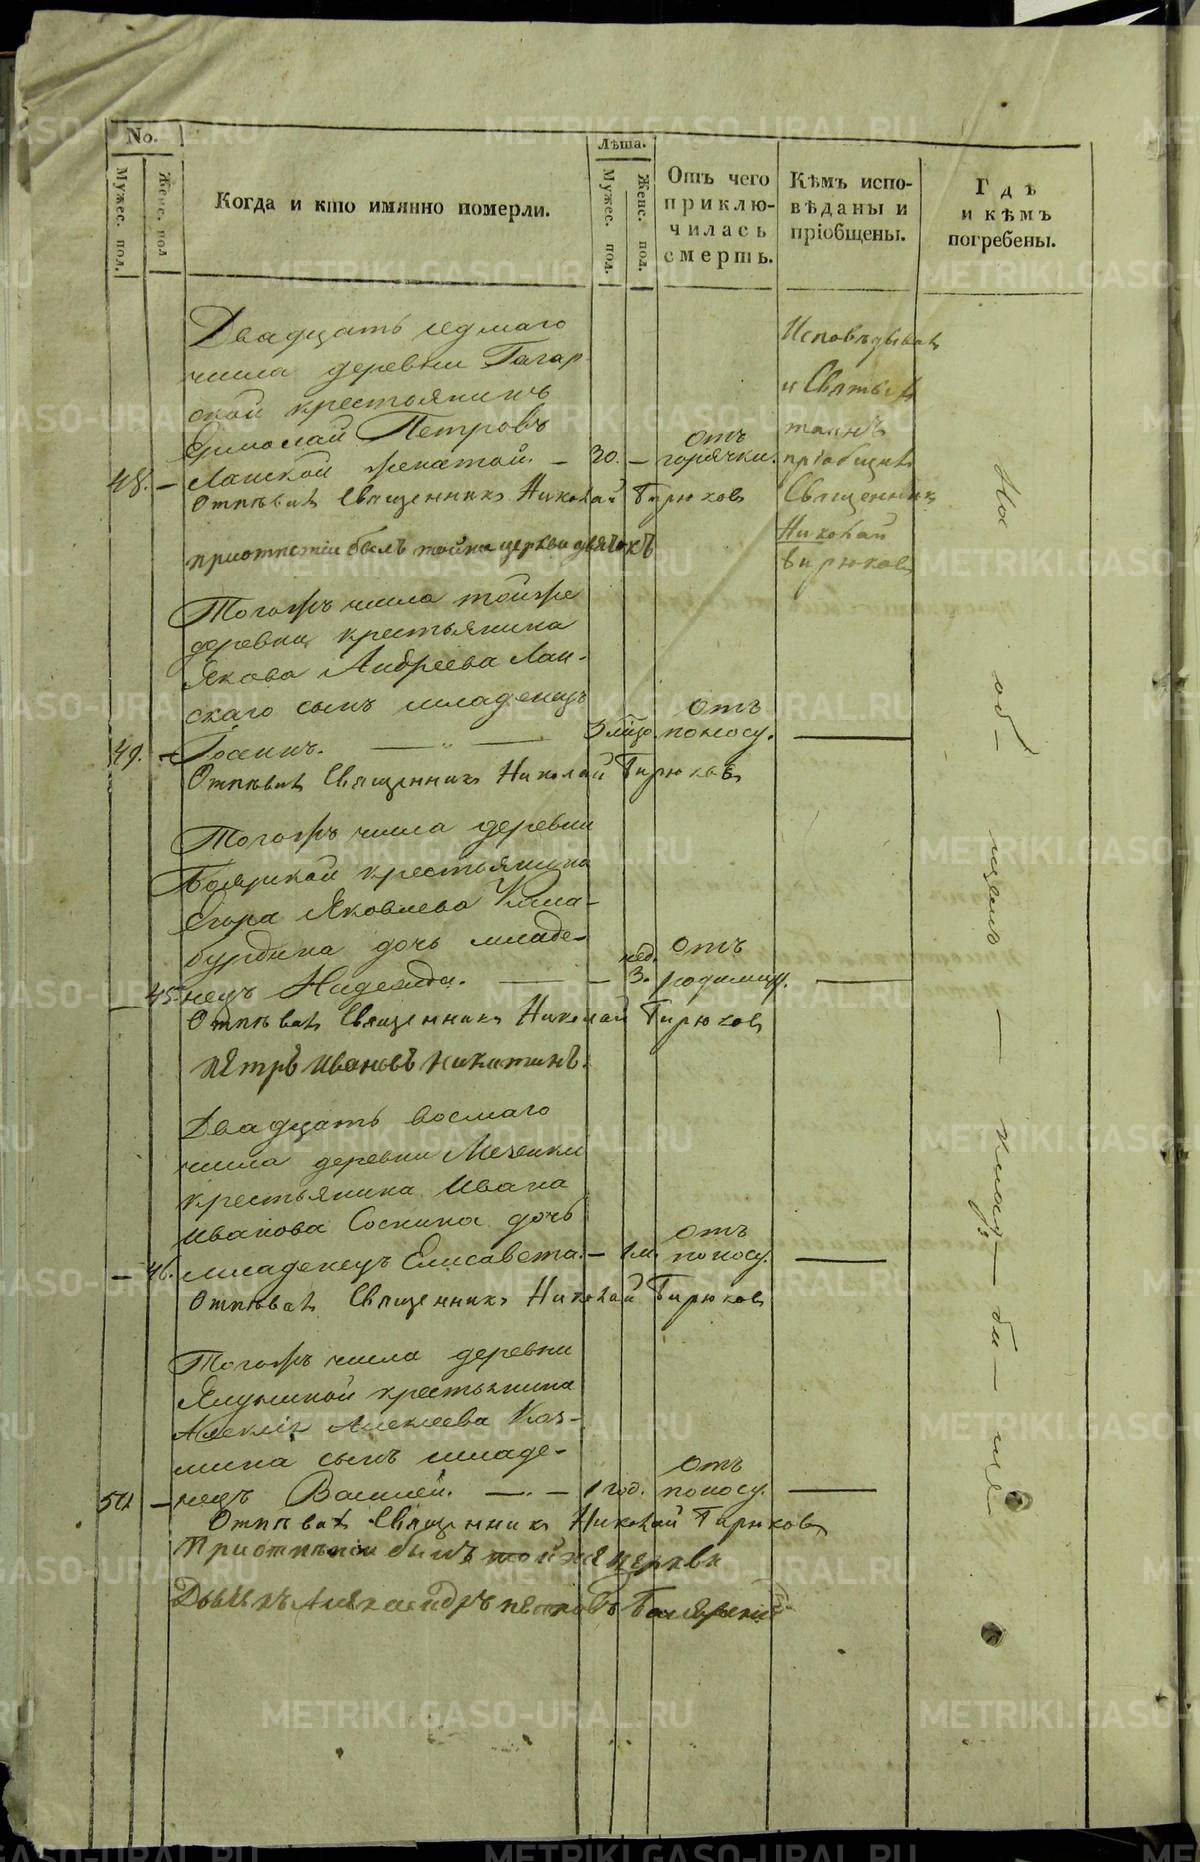 No.
Мужес. пол.
Женс. пол
Когда и кто имянно померли.
Лѣта.
Мужес. пол.
Женс. пол.
Отъ чего
приклю-
чилась
смерть.
Кѣмъ испо-
вѣданы и
пріобщены.
Гдѣ
и кѣмъ
погребены.
Двадцать седмаго
числа деревни Гагар
ской крестьянинъ
Ермолай Петровъ
48. — Ланской женатой. — 30. — отъ горячки.
Отпѣвалъ Священникъ Николай Бирюковъ
приотпетіи былъ тойже церкви дьячокъ
Исповѣдывалъ
и Святыхъ
таинъ
пріобщилъ
Священникъ
Николай
Бирюковъ
Тогожъ числа тойже
деревни крестьянина
Якова Андреева Лан-
скаго сынъ младенецъ
49. — Іоаннъ. — отъ поносу. —
Отпѣвалъ Священникъ Николай Бирюковъ
Тогожъ числа деревни
Боярской крестьянина
Егора Яковлева
дочь младе-
— 45. нецъ Надежда. — — нед. 3. отъ родимцу. —
Отпѣвалъ Священникъ Николай Бирюковъ
Пётръ Ивановъ Никитинъ.
Двадцать восмаго
числа деревни Мезенки
крестьянина Ивана
Иванова Соснина дочь
— 46. младенецъ Елисавета. — 1 м. отъ поносу. —
Отпѣвалъ Священникъ Николай Бирюковъ
Тогожъ числа деревни
Ялуниной крестьянина
Алексія Алексеева Коз-
мина сынъ младе-
50 — нецъ Василей. — 1 год. отъ поносу. —
Отпѣвалъ Священникъ Николай Бирюковъ
Приотпѣтіи былъ тойже церкви
Дьячекъ Александръ Петровъ
На об— щемъ — клад— би— ще
METRIKI.GASO-URAL.RU